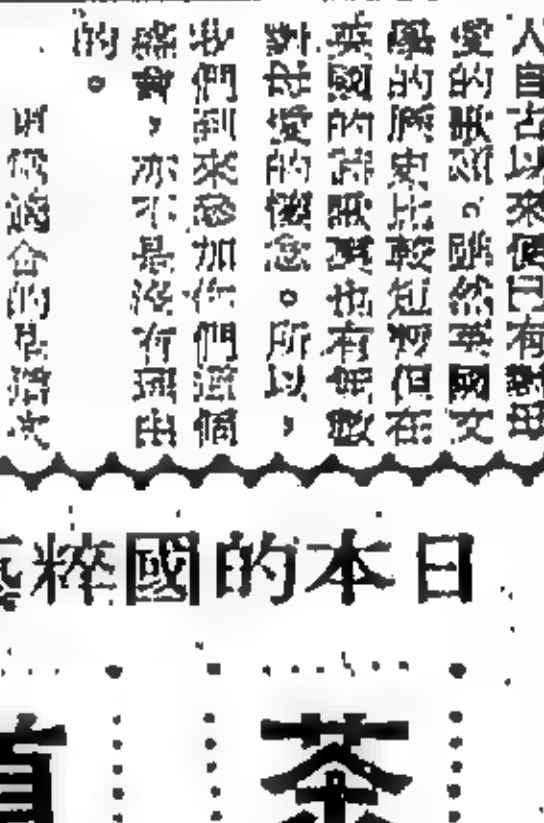 人自古以來便已有對母
愛的歌頌。雖然英國文
學的歷史比較短暫但在
英國的詩歌裏也有無數
對母愛的懷念。所以，
我們到來參加你們這個
盛會，亦不是沒有理由
的。
適合的是
日本的國粹
茶